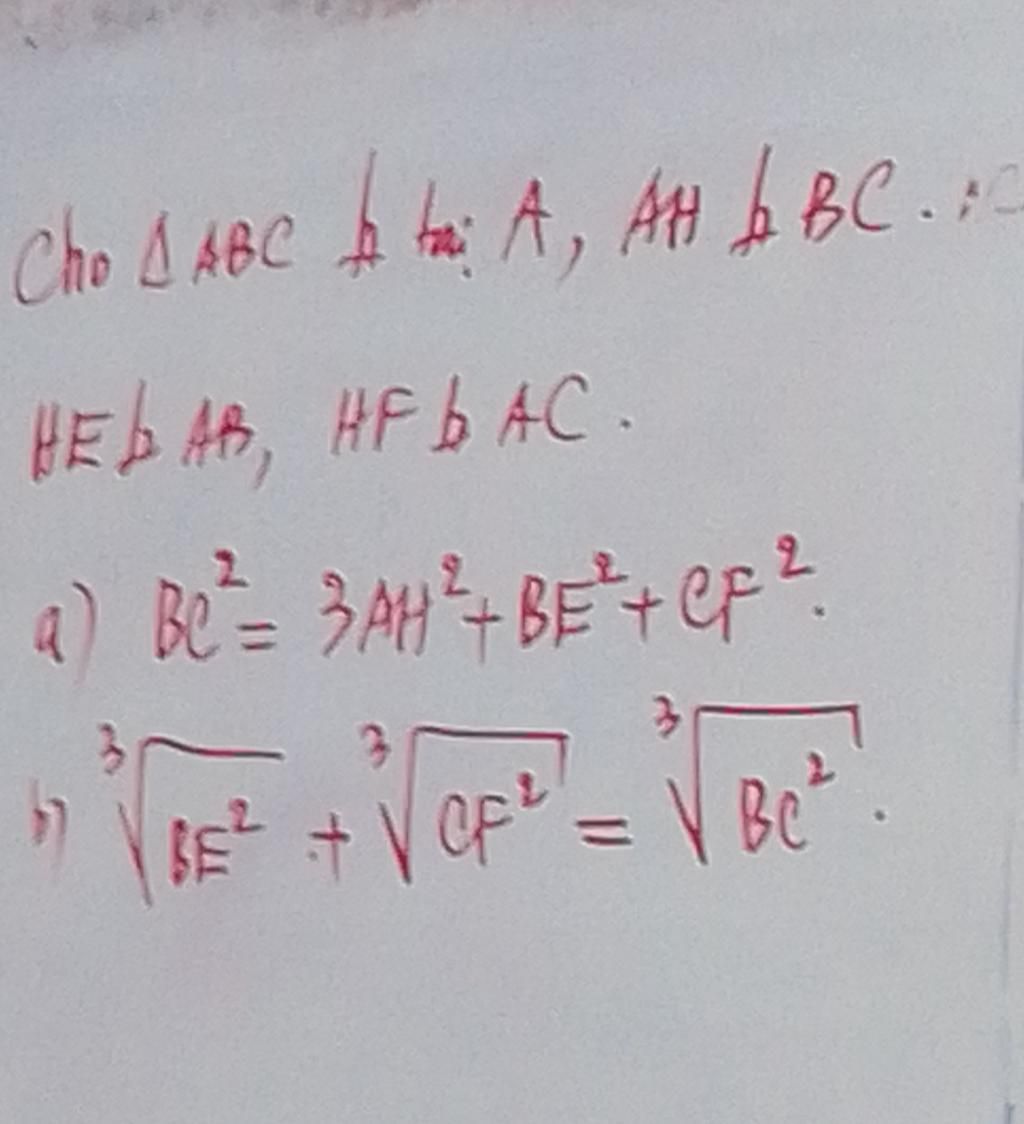 Cho Δ ABC ⊥ tại A, AH ⊥ BC.
HE ⊥ AB, HF ⊥ AC.
a) BC² = 3AH² + BE² + CF².
b) ∛BE² + ∛CF² = ∛BC².